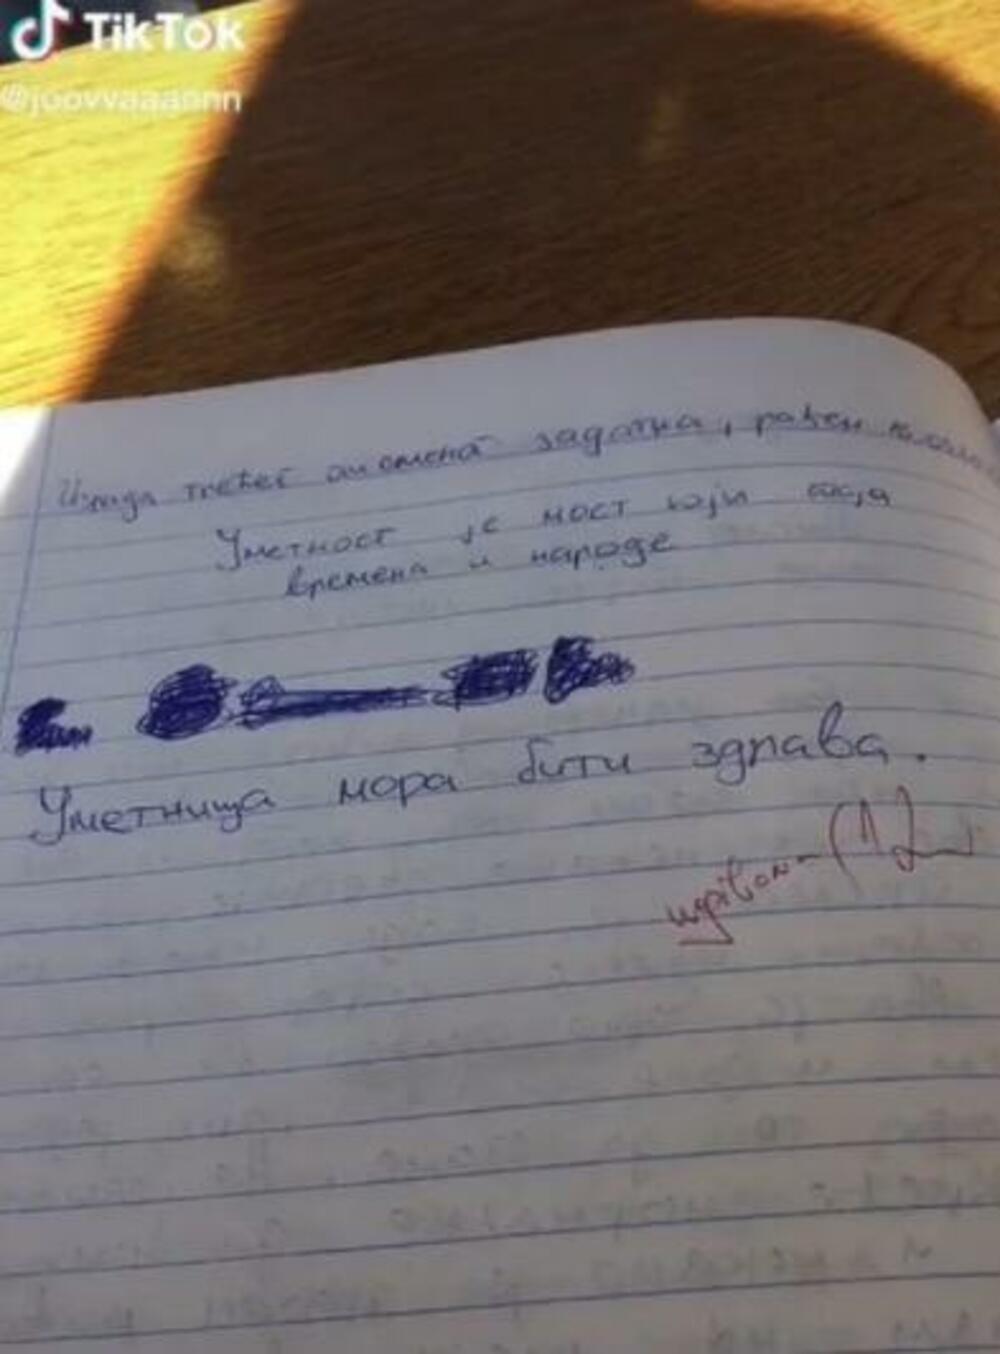 TikTok
@joovvaaannn
Израда трећег писменог задатка,
Уметност је мост који спаја
времена и народе
Уметница мора бити здрава.
(1)